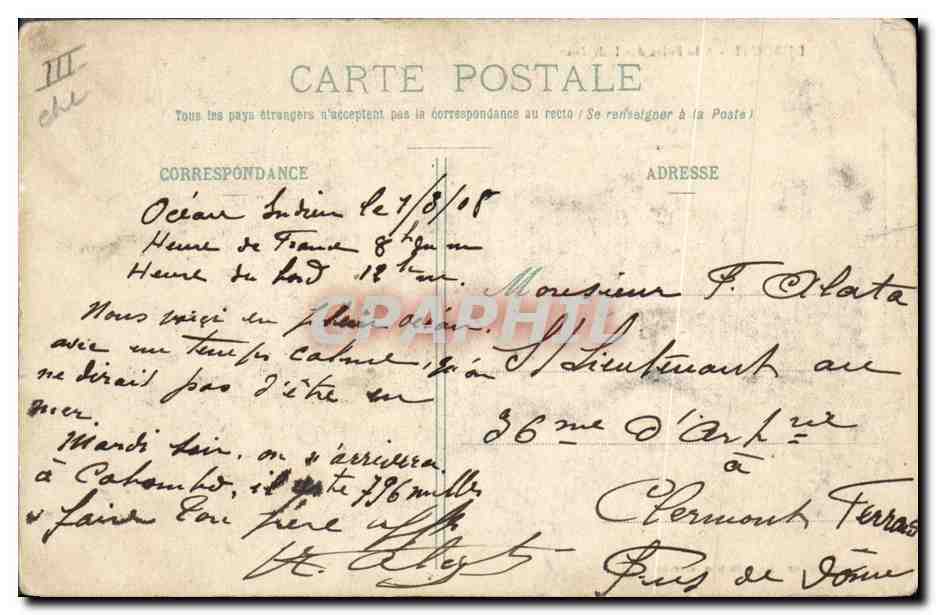 III
CARTE POSTALE
Tous les pays étrangers n'acceptent pas la correspondance au recto (Se renseigner à la Poste)
CORRESPONDANCE
ADRESSE
Océan Indien le 7/8/08
Heure de France 8h du m
Heure du bord 12h m.
Nous voici en plein océan.
avec un temps calme, qu'on
ne dirait pas d'être en
mer.
Mardi soir, on s'arrivera
à Colombo, il reste 796 milles
à faire Ton frère aff
Monsieur F. Alata
S/Lieutenant au
36me d'Art rie
à
Clermont Ferrand
Puy de Dôme
CPAPHIL